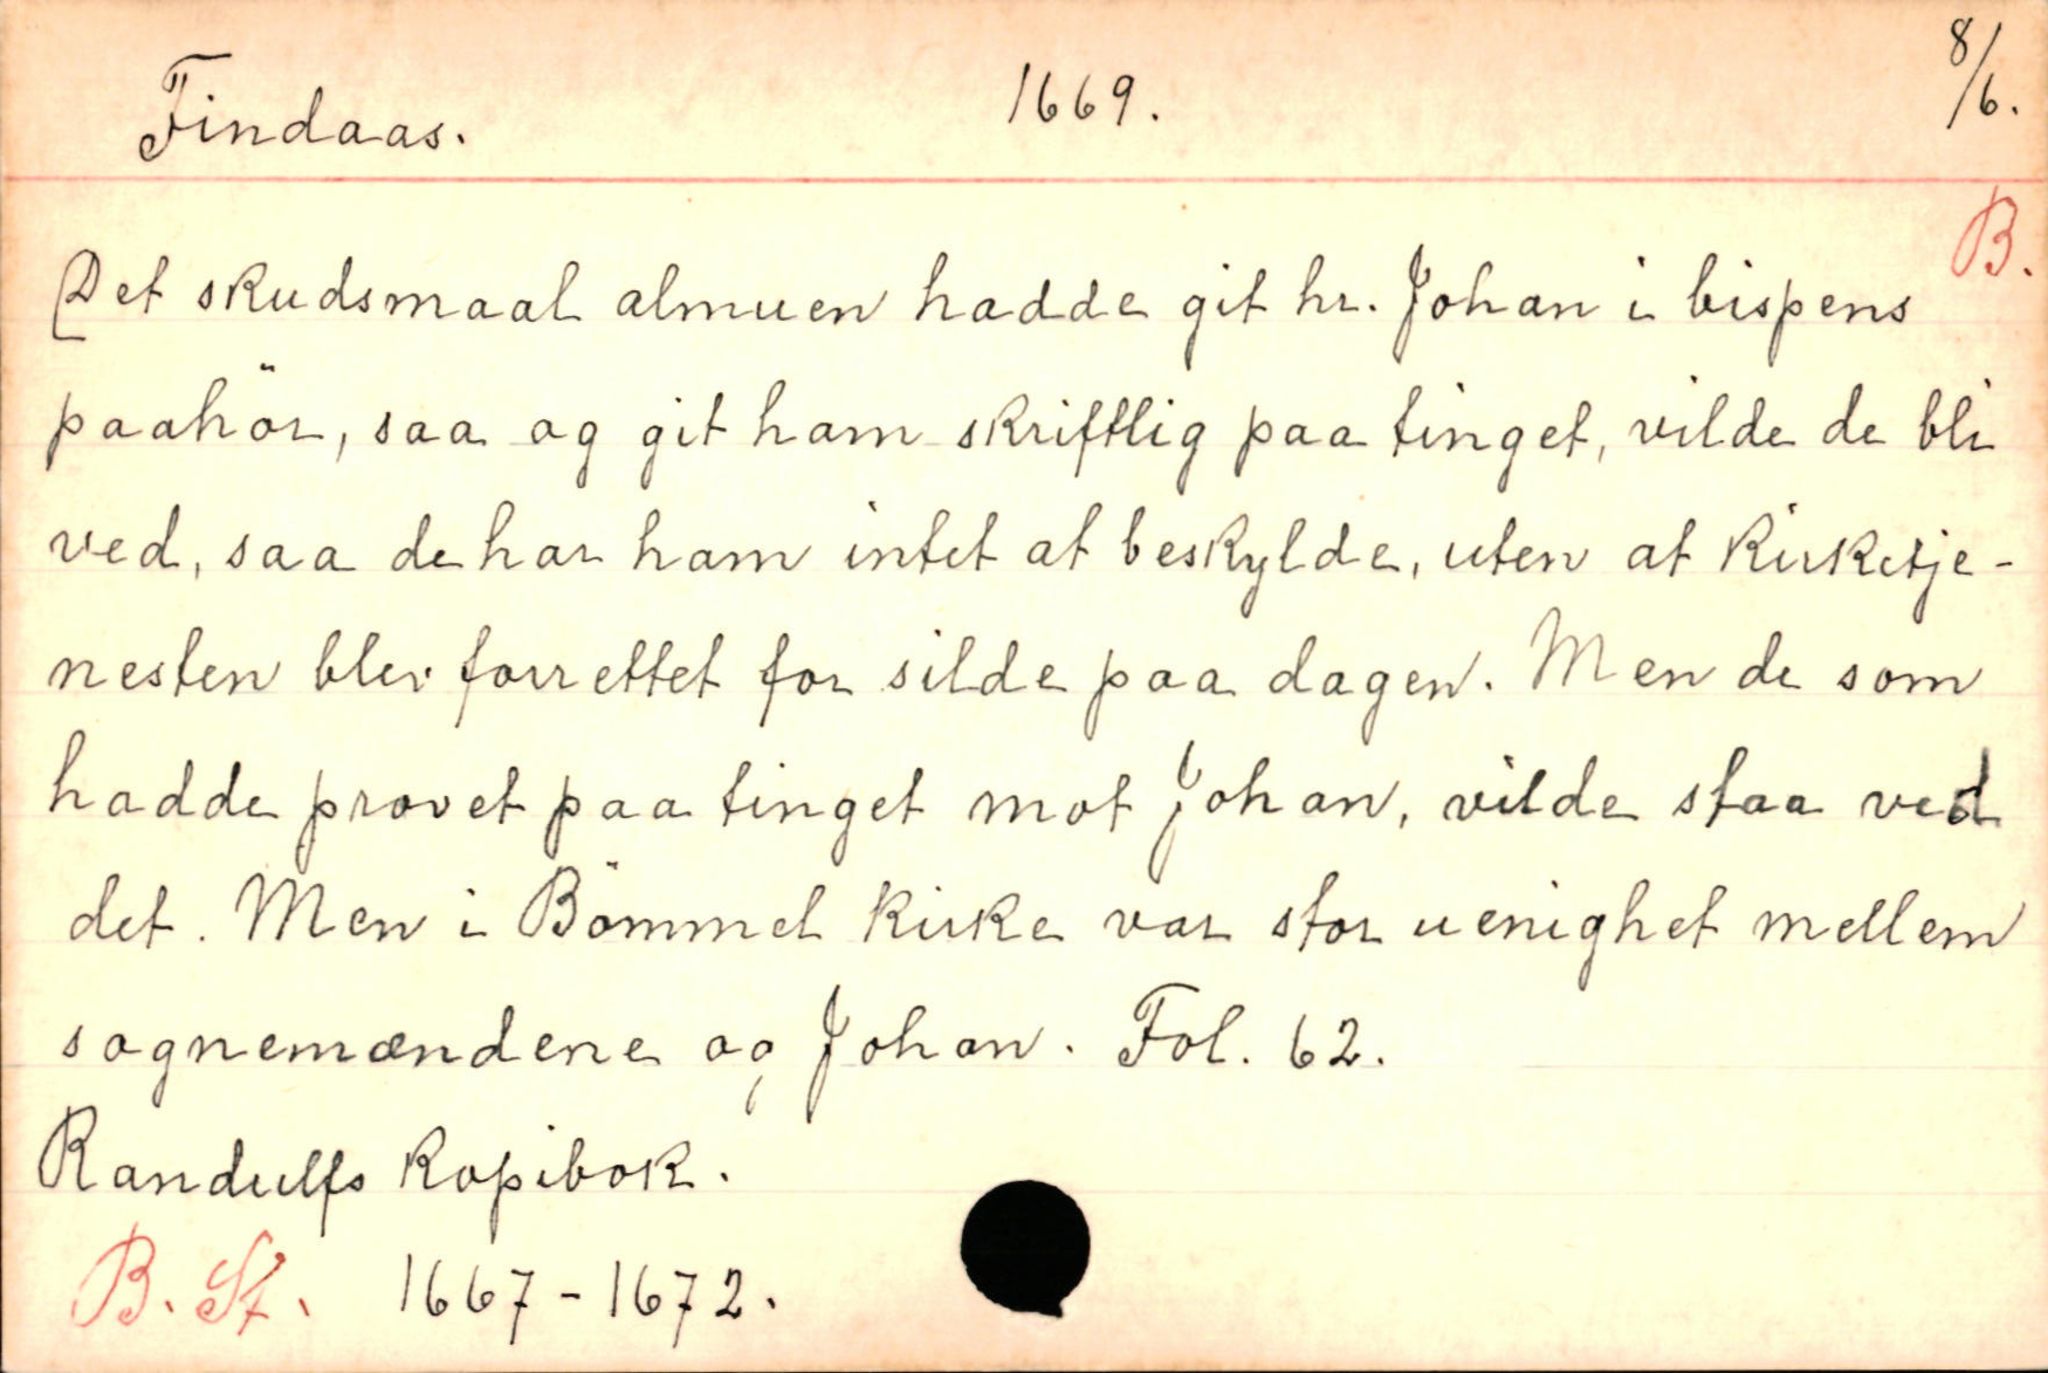 Findaas. 1669. 8/6.
B.
Det skudsmaal almuen hadde git hr. Johan i bispens
paahör, saa og git ham skriftlig paa tinget, vilde de bli
ved, saa de har ham intet at beskylde, uten at kirketje-
nesten blev forrettet for silde paa dagen. Men de som
hadde provet paa tinget mot Johan, vilde staa ved
det. Men i Bömmel kirke var stor uenighet mellem
sognemændene og Johan. Fol. 62.
Randulfs kopibok.
B. St. 1667-1672.